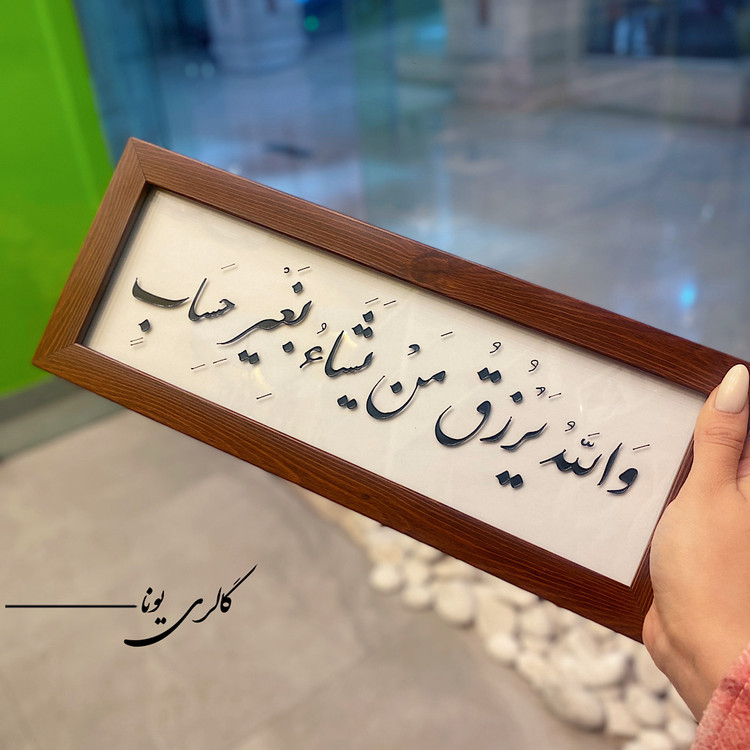 وَاللّٰهُ يَرْزُقُ مَنْ يَشَاءُ بِغَيْرِ حِسَابٍ
گالری یونا